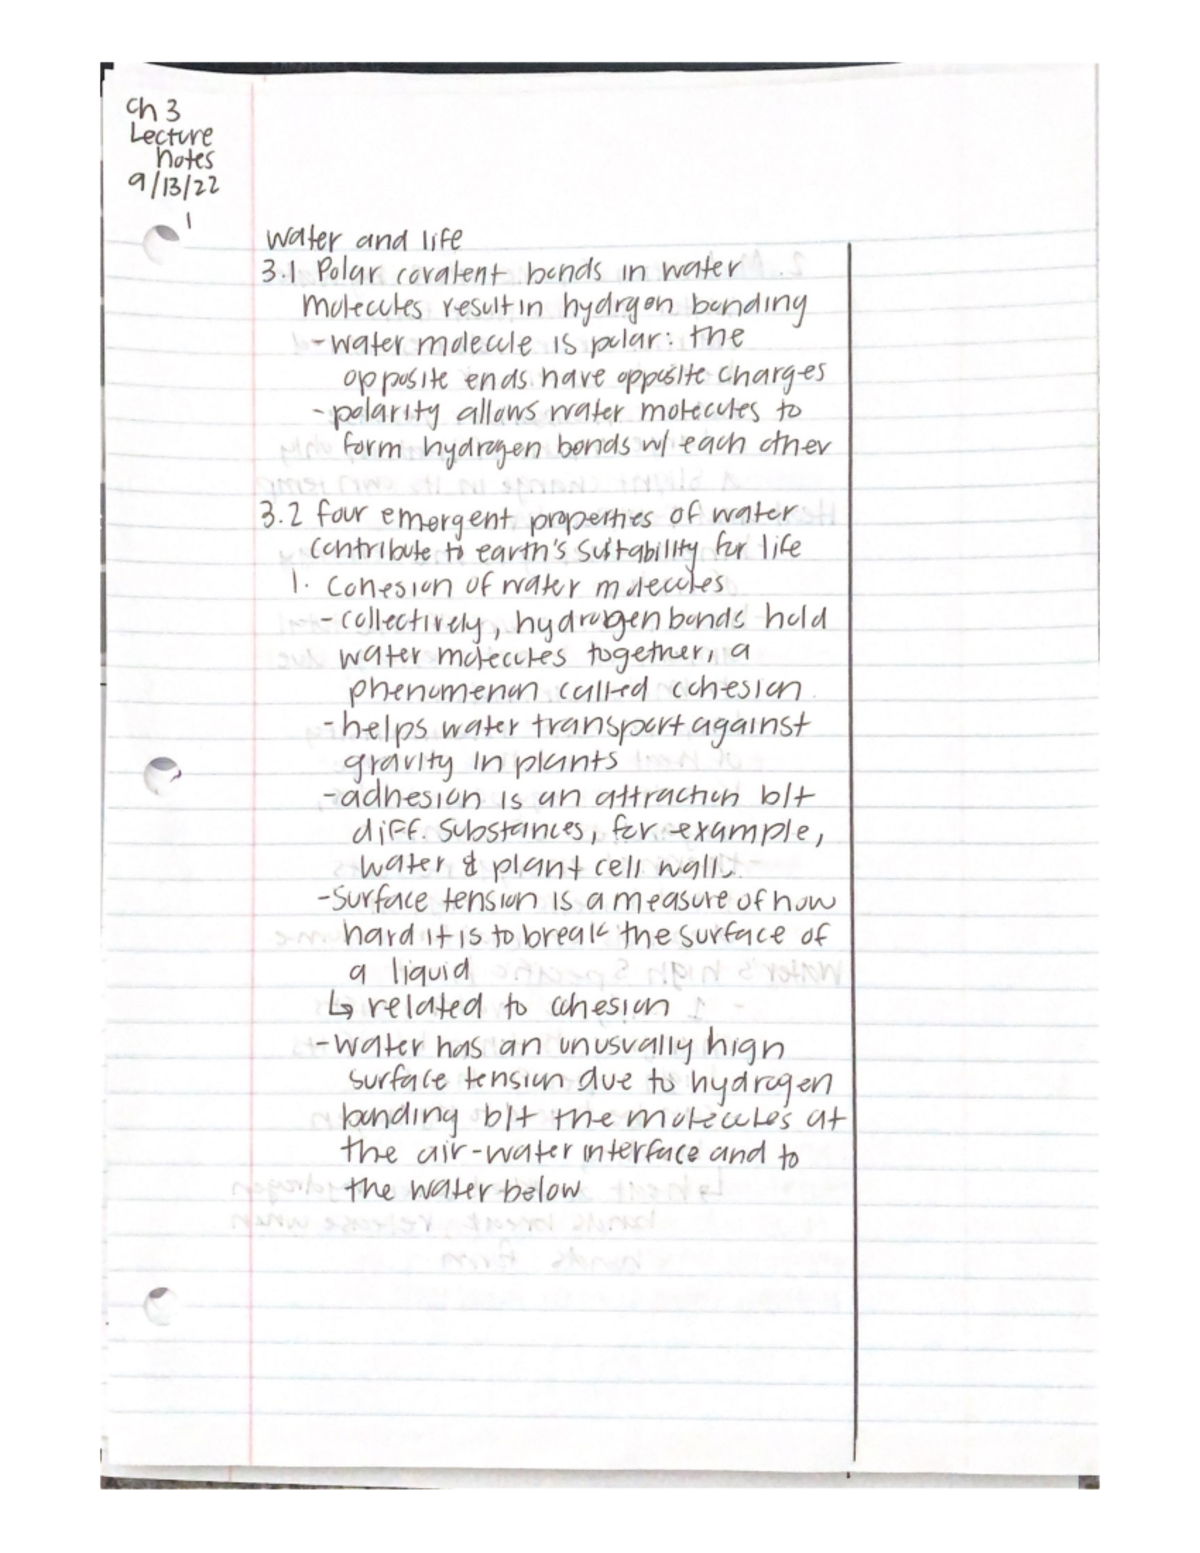 Ch 3
Lecture
notes
9/13/22
1
Water and life
3.1 Polar covalent bonds in water
molecules result in hydrgon bonding
- water molecule is polar: the
opposite ends have opposite charges
- polarity allows water molecules to
form hydrogen bonds w/ each other
3.2 Four emergent properties of water
contribute to earth's suitability for life
1. Cohesion of water molecules
- collectively, hydrogen bonds hold
water molecules together, a
phenomenon called cohesion
- helps water transport against
gravity in plants
- adhesion is an attraction b/t
diff. substances, for example,
water & plant cell walls
- Surface tension is a measure of how
hard it is to break the surface of
a liquid
↳ related to cohesion
- Water has an unusually high
surface tension due to hydrogen
bonding b/t the molecules at
the air-water interface and to
the water below